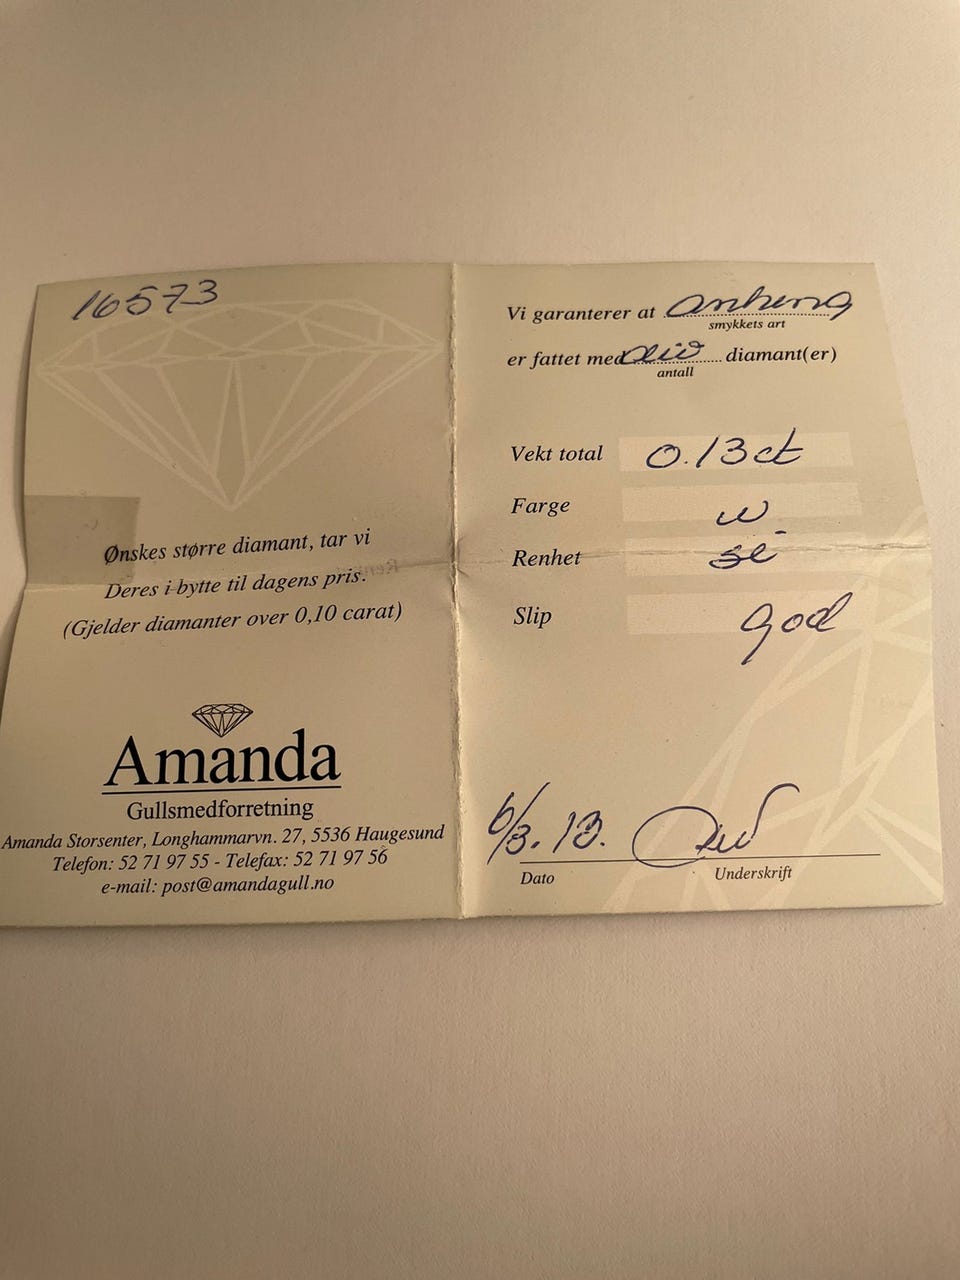 16573
Ønskes større diamant, tar vi
Deres i bytte til dagens pris.
(Gjelder diamanter over 0,10 carat)
Amanda
Gullsmedforretning
Amanda Storsenter, Longhammarvn. 27, 5536 Haugesund
Telefon: 52 71 97 55 - Telefax: 52 71 97 56
e-mail: post@amandagull.no
Vi garanterer at anheng
smykkets art
er fattet med diamant(er)
antall
Vekt total 0.13 ct
Farge w
Renhet si
Slip god
6/3.13.
Dato Underskrift